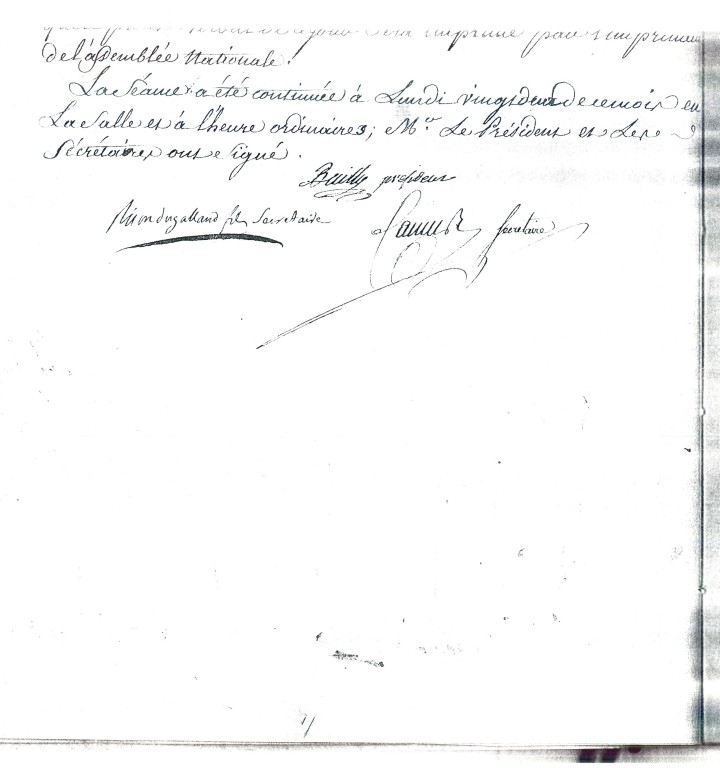 sera imprimé par l'imprimeur
de l'assemblée Nationale.
La Séance a été continuée à Lundi vingt deux de ce mois en
La Salle et à l'heure ordinaires; Mr. Le Président et Les
Sécrétaires ont signé.
Bailly président
Pison dugalland fils Secretaire Camus Secretaire